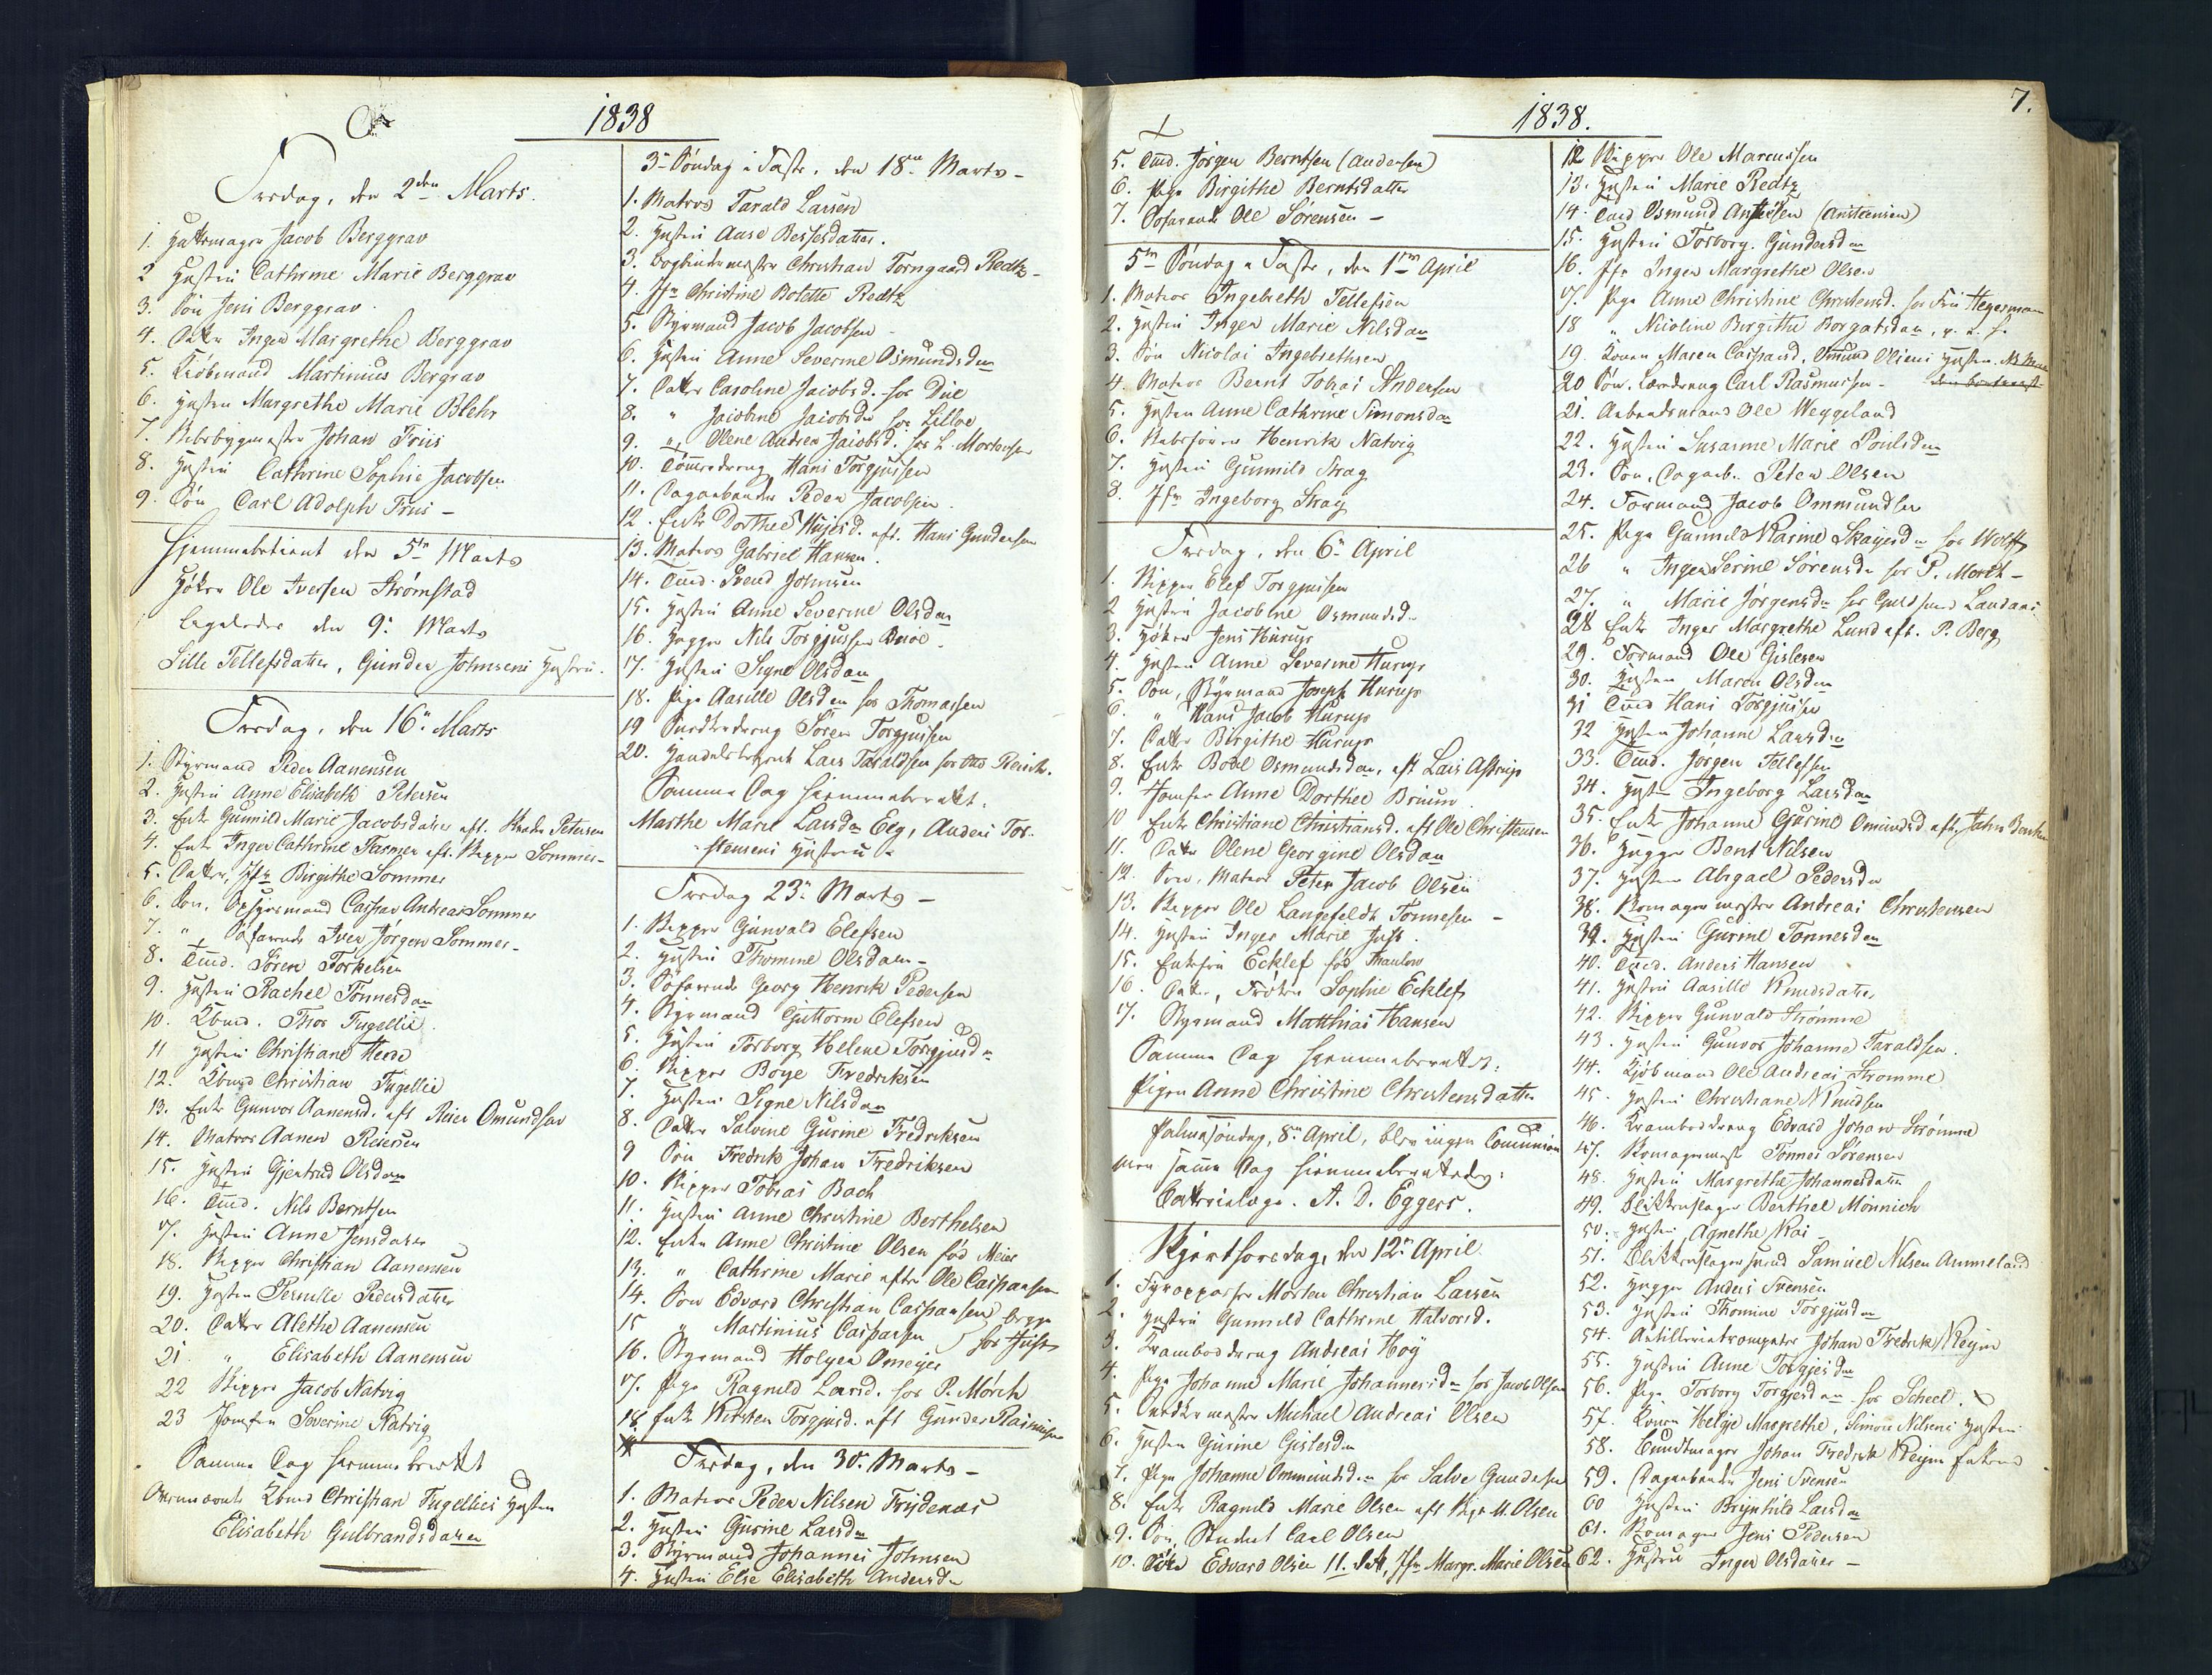 1838
Fredag, den 2den Marts.
1. Hattemager Jacob Berggrav
2 Hustru Cathrine Marie Berggrav
3. Søn Jens Berggrav
4. Datter Inger Margrethe Berggrav
5. Kiöbmand Martinius Bergrav
6. Hustru Margrethe Marie Blehr
7. Skibsbygmester Johan Friis
8. Hustru Cathrine Sophie Jacobsen
9. Søn Carl Adolph Friis -
Hjemmebetient den 5te Marts
Høker Ole Iversen Strømstad
Ligeledes den 9de Marts
Sille Tellefsdatter, Gunder Johnsens Hustru.
Fredag, den 16de Marts
1. Styrmand Peder Aanensen
2. Hustru Anne Elisabeth Petersen
3. Enke Gunnild Marie Jacobsdatter eft. Petersen
4. Enke Inger Cathrine Farmen eft. Skipper Sommer-
5. Datter, Jfr Birgithe Sommer
6. Søn, Opsynsmand Casper Andreas Sommer
7. " Søfarende Iver Jørgen Sommer-
8. Tmd. Søren Torkelsen
9. Hustru Rachel Tønnesdatter
10. Kbmd. Thor Fugellie.
11 Hustru Christiane Herse
12. Kbmd Christian Fugellie
13. Enke Gunvor Aanensd. eft Reier Omundsen
14. Matros Aanen Reiersen
15. Hustru Gjertrud Olsdatter
16. Tmd. Nils Berntsen
17. Hustru Anne Jensdatter
18. Skipper Christian Aanensen
19. Hustru Pernille Pedersdatter
20. Datter Alethe Aanensen
21 " Elisabeth Aanensen
22 Skipper Jacob Natvig
23 Jomfru Severine Natvig
Samme Dag hjemmeberettet
Ovennævnte Kbmd Christian Fugellies Hustru
Elisabeth Gulbrandsdatter
3die Søndag i Faste, den 18de Marts-
1. Matros Tarald Larsen
2. Hustru Aase Bessesdatter.
3. Bogbindermester Christian Torngaard Redtz-
4. Jfr Christine Bolette Redtz
5. Styrmand Jacob Jacobsen
6. Hustru Anne Severine Osmundsdatter
7. Datter Caroline Jacobsd. hos Due
8. " Jacobine Jacobsdr hos Lilloe
9. " Olene Andrea Jacobsd. hos L. Mortensen
10. Tømmerdreng Hans Torgjussen
11. Dagarbeider Peder Jacobsen.
12. Enke Dorthea d. eft. Hans Gundersen
13. Matros Gabriel Hansen.
14. Tmd. Svend Johnsen
15. Hustru Anne Severine Olsdatter
16. Hugger Nils Torgjussen Buoe.
17. Hustru Signe Olsdatter
18. Pige Aasille Olsdatter hos Thomassen
19 Snedkerdreng Søren Torgjussen
20. Handelsbetjent Lars Taraldsen hos Otto Reinh.
Samme Dag hjemmeberettet:
Marthe Marie Larsdr Eeg, Anders Tor-
stensens Hustru.
Fredag 23de Marts -
1. Skipper Gunvald Elefsen
2. Hustru Thomine Olsdatter-
3. Søfarende Georg Henrik Pedersen
4. Styrmand Guttorm Elefsen
5. Hustru Torborg Helene Torgjusdr
6. Skipper Boye Fredriksen
7. Hustru Signe Nilsdatter
8. Datter Salvine Gurine Fredriksen
9 Søn Fredrik Johan Fredriksen
10. Skipper Tobias Bach
11. Hustru Anne Christine Berthelsen
12. Enke Anne Christine Olsen fød Meier
13. " Cathrine Marie efter Ole Caspersen
14. Søn Edvard Christian Caspersen } begge
15 " Martinius Caspersen } hos Just
16. Styrmand Holger Omeyer
17. Pige Ragnild Larsd. hos P. Mørch
18. Enke Kirsten Torgjusd. eft Gunder Rasmussen
Fredag, den 30te Marts-
1. Matros Peder Nilsen Frydenæs
2. Hustru Gurine Larsdr
3. Styrmand Johannes Johnsen
4. Hustru Else Elisabeth Andersdr
1838.
7.
5. Tmd. Jørgen Berntsen (Andersen)
6. Pige Birgithe Berntsdatter
7. Søfarende Ole Sørensen -
5te Søndag i Faste, den 1ste April
1. Matros Ingebreth Tellefsen
2. Hustru Inger Marie Nilsdatter
3. Søn Nicolai Ingebrethsen
4. Matros Bernt Tobias Andersen
5. Hustru Anne Cathrine Simonsdatter
6. Skibsfører Henrik Natvig
7. Hustru Gunnild Stray
8. Jfr Ingeborg Stray
Fredag, den 6te April
1. Skipper Elef Torgjussen
2 Hustru Jacobine Osmundsd.
3. Høker Jens Hurup
4. Hustru Anne Severine Hurup
5. Søn, Styrmand Joseph Hurup
6. " Hans Jacob Hurup
7. Datter Birgithe Hurup
8. Enke Bodel Osmundsdatter, eft Lars Astrup
9. Jomfru Anne Dorthee Bruun
10 Enke Christiane Christiansd. eft Ole Christensen
11. Datter Olene Georgine Olsdatter
12. Søn, Matros Peter Jacob Olsen
13. Skipper Ole Langefeldt Tønnesen -
14. Hustru Inger Marie Juss.
15. Enkefru Ecklef fød Thaulow
16. Datter, Frøken Sophie Ecklef
17. Styrmand Matthias Hansen
Samme Dag hjemmeberettet:
Pigen Anne Christine Christensdatter
Palmesøndag, 8de April, blev ingen Comunion
men samme Dag hjemmeberettedes:
Batterielæge A. D. Eggers.
Skjærthorsdag, den 12te April.
1. Fyrpasser Morten Christian Larsen
2. Hustru Gunnild Cathrine Halvorsd.
3. Krambodreng Andreas Høy
4. Pige Johanne Marie Johannesdr hos Jacob Olsen
5. Snedkermester Michael Andreas Olsen
6. Hustru Gurine Gislesdr
7. Pige Johanne Ommundsdr hos Salve Gundersen
8. Enke Ragnild Marie Olsen eft Skpr M. Olsen
9. Søn, Student Carl Olsen
10. Edvard Olsen 11. Datt, Jfr Margr. Marie Olsen
12 Skipper Ole Marcussen
13. Hustru Marie Redtz
14. Tmd Osmund Anstensen (Anstensen)
15. Hustru Torborg Gundersdr
16. Jfr Inger Margrethe Olsen
17. Pige Anne Christine Christensd. hos Fru Hegermann
18 " Nicoline Birgithe Borgatsdatter,
19. Konen Maren Caspersd, Omund Olsens Hustru.
20 Søn. Læredreng Carl Rasmussen -
21. Arbeidsmand Ole Weggeland
22. Hustru Susanne Marie Poulsdr
23. Søn, Dagarb. Peter Olsen
24. Formand Jacob Ommundsen
25. Pige Gunnild Karine dr hos Wolff
26 " Inger Serine Sørensdr hos P. Mørch-
27. " Marie Jørgensdr hos Guldsmed
28 Enke Inger Margrethe Lund eft. P. Berg
29. Formand Ole Gislesen
30. Hustru Maren Olsdr
31 Tmd Hans Torgjussen
32 Hustru Johanne Larsdr
33. Tmd. Jørgen Tellefsen
34. Hustru Ingeborg Larsdr
35. Enke Johanne Gurine Omundsd eft. John
36. Hugger Bent Nilsen
37. Hustru Abigael Pedersdr
38. Skomagermester Andreas Christensen
39. Hustru Gurine Tønnesdr
40. Tmd. Anders Hansen
41. Hustru Aasille Knudsdatter
42. Skipper Gunvald Strømme
43. Hustru Gunvor Johanne Taraldsen.
44. Kjöbmand Ole Andreas Strømme
45. Hustru Christiane Knudsen
46. Krambodreng Edvard Johan Strømme
47. Skomagermest Tønnes Sørensen
48. Hustru Margrethe Johannesdatter
49. Blikkenslager Berthel Mönnich
50. Hustru Agnethe Kai
51. Blikkenslagersvend Samuel Nilsen Ammeland
52. Hugger Anders Svensen
53. Hustru Thomine Torgjusdr
54. Artillerietrompeter Johan Fredrik Kreyer
55. Hustru Anne Torgjesdr
56. Pige Torborg Torgjesdr hos Scheel.
57. Konen Helge Margrethe, Simon Nilsens Hustru
58. Buntmager Johan Fredrik
59. Dagarbeider Jens Svensen
60 Hustru Brynhild Larsdr
61. Skomager Jens Pedersen
62. Hustru Inger Olsdatter-